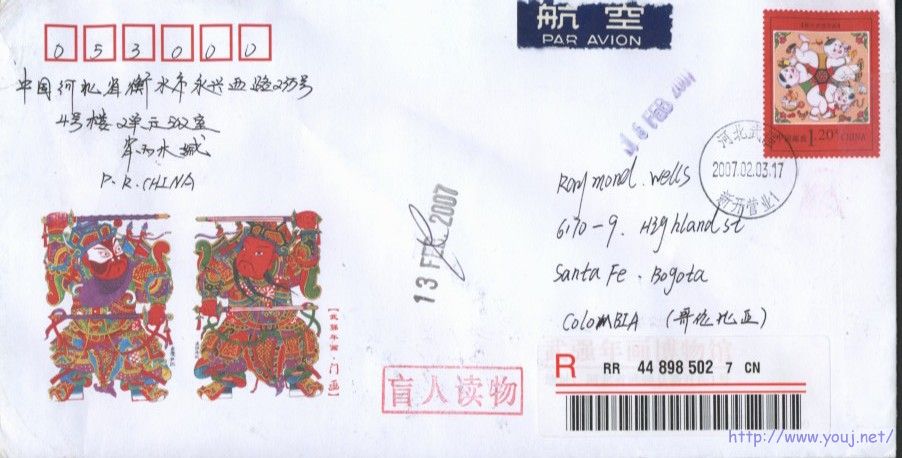 053000
中国河北省衡水市永兴西路293号
4号楼2单元502室
P.R.CHINA
航空
PAR AVION
中国邮政 1.20元 CHINA
16 FEB 2007
河北武强
2007.02.03.17
新开营业1
13 FEB 2007
Raymond. Wells
6170-9. Highland st
Santa Fe. Bogota
COLOMBIA (哥伦比亚)
【武强年画·门画】
武强年画博物馆
盲人读物
R RR 44 898 502 7 CN
http://www.youj.net/